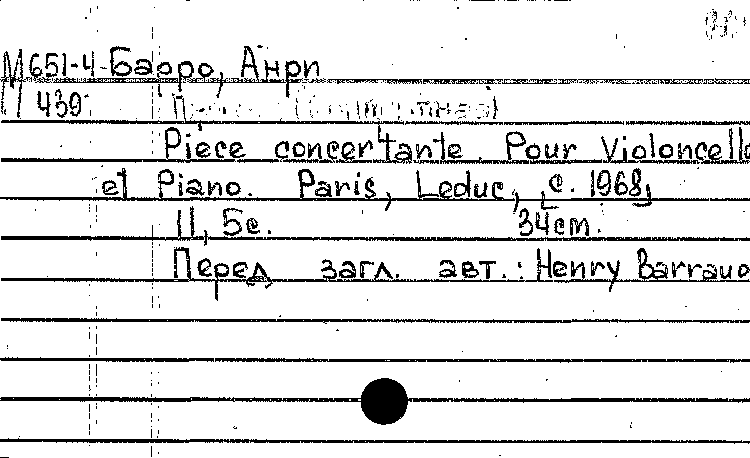 М651-4 Барро, Анри
П 439
Pièce concertante. Pour Violoncello
et Piano. Paris, Leduc, c. 1968,
11, 5с. 34cm.
Перед загл. авт.: Henry Barraud